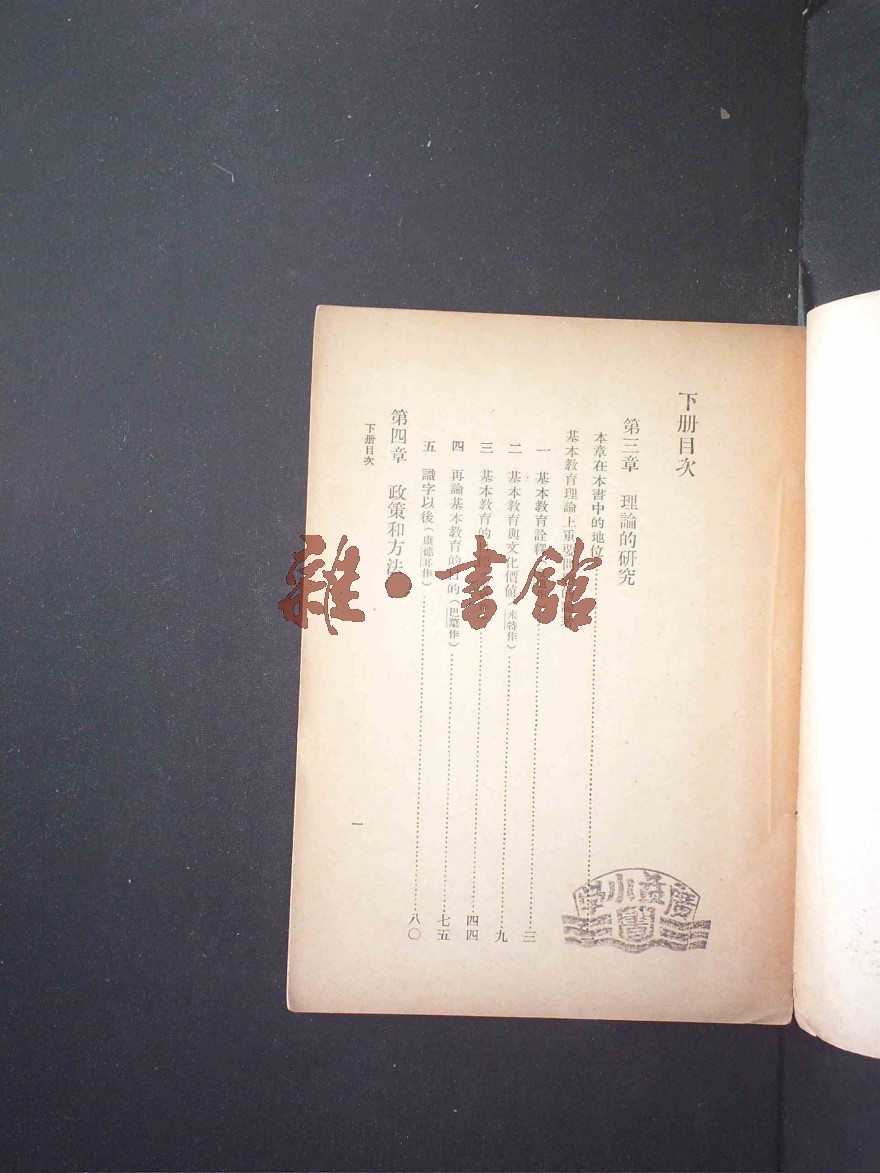 下册目次
第三章 理論的研究
本章在本書中的地位
基本教育理論上重要
一 基本教育詮釋 三
二 基本教育與文化價値(米特作) 九
三 基本教育的 四四
四 再論基本教育的目的(巴葉作) 七五
五 識字以後(康德耳作) 八〇
第四章 政策和方法
下册目次
一
雜·書館
廣益小學